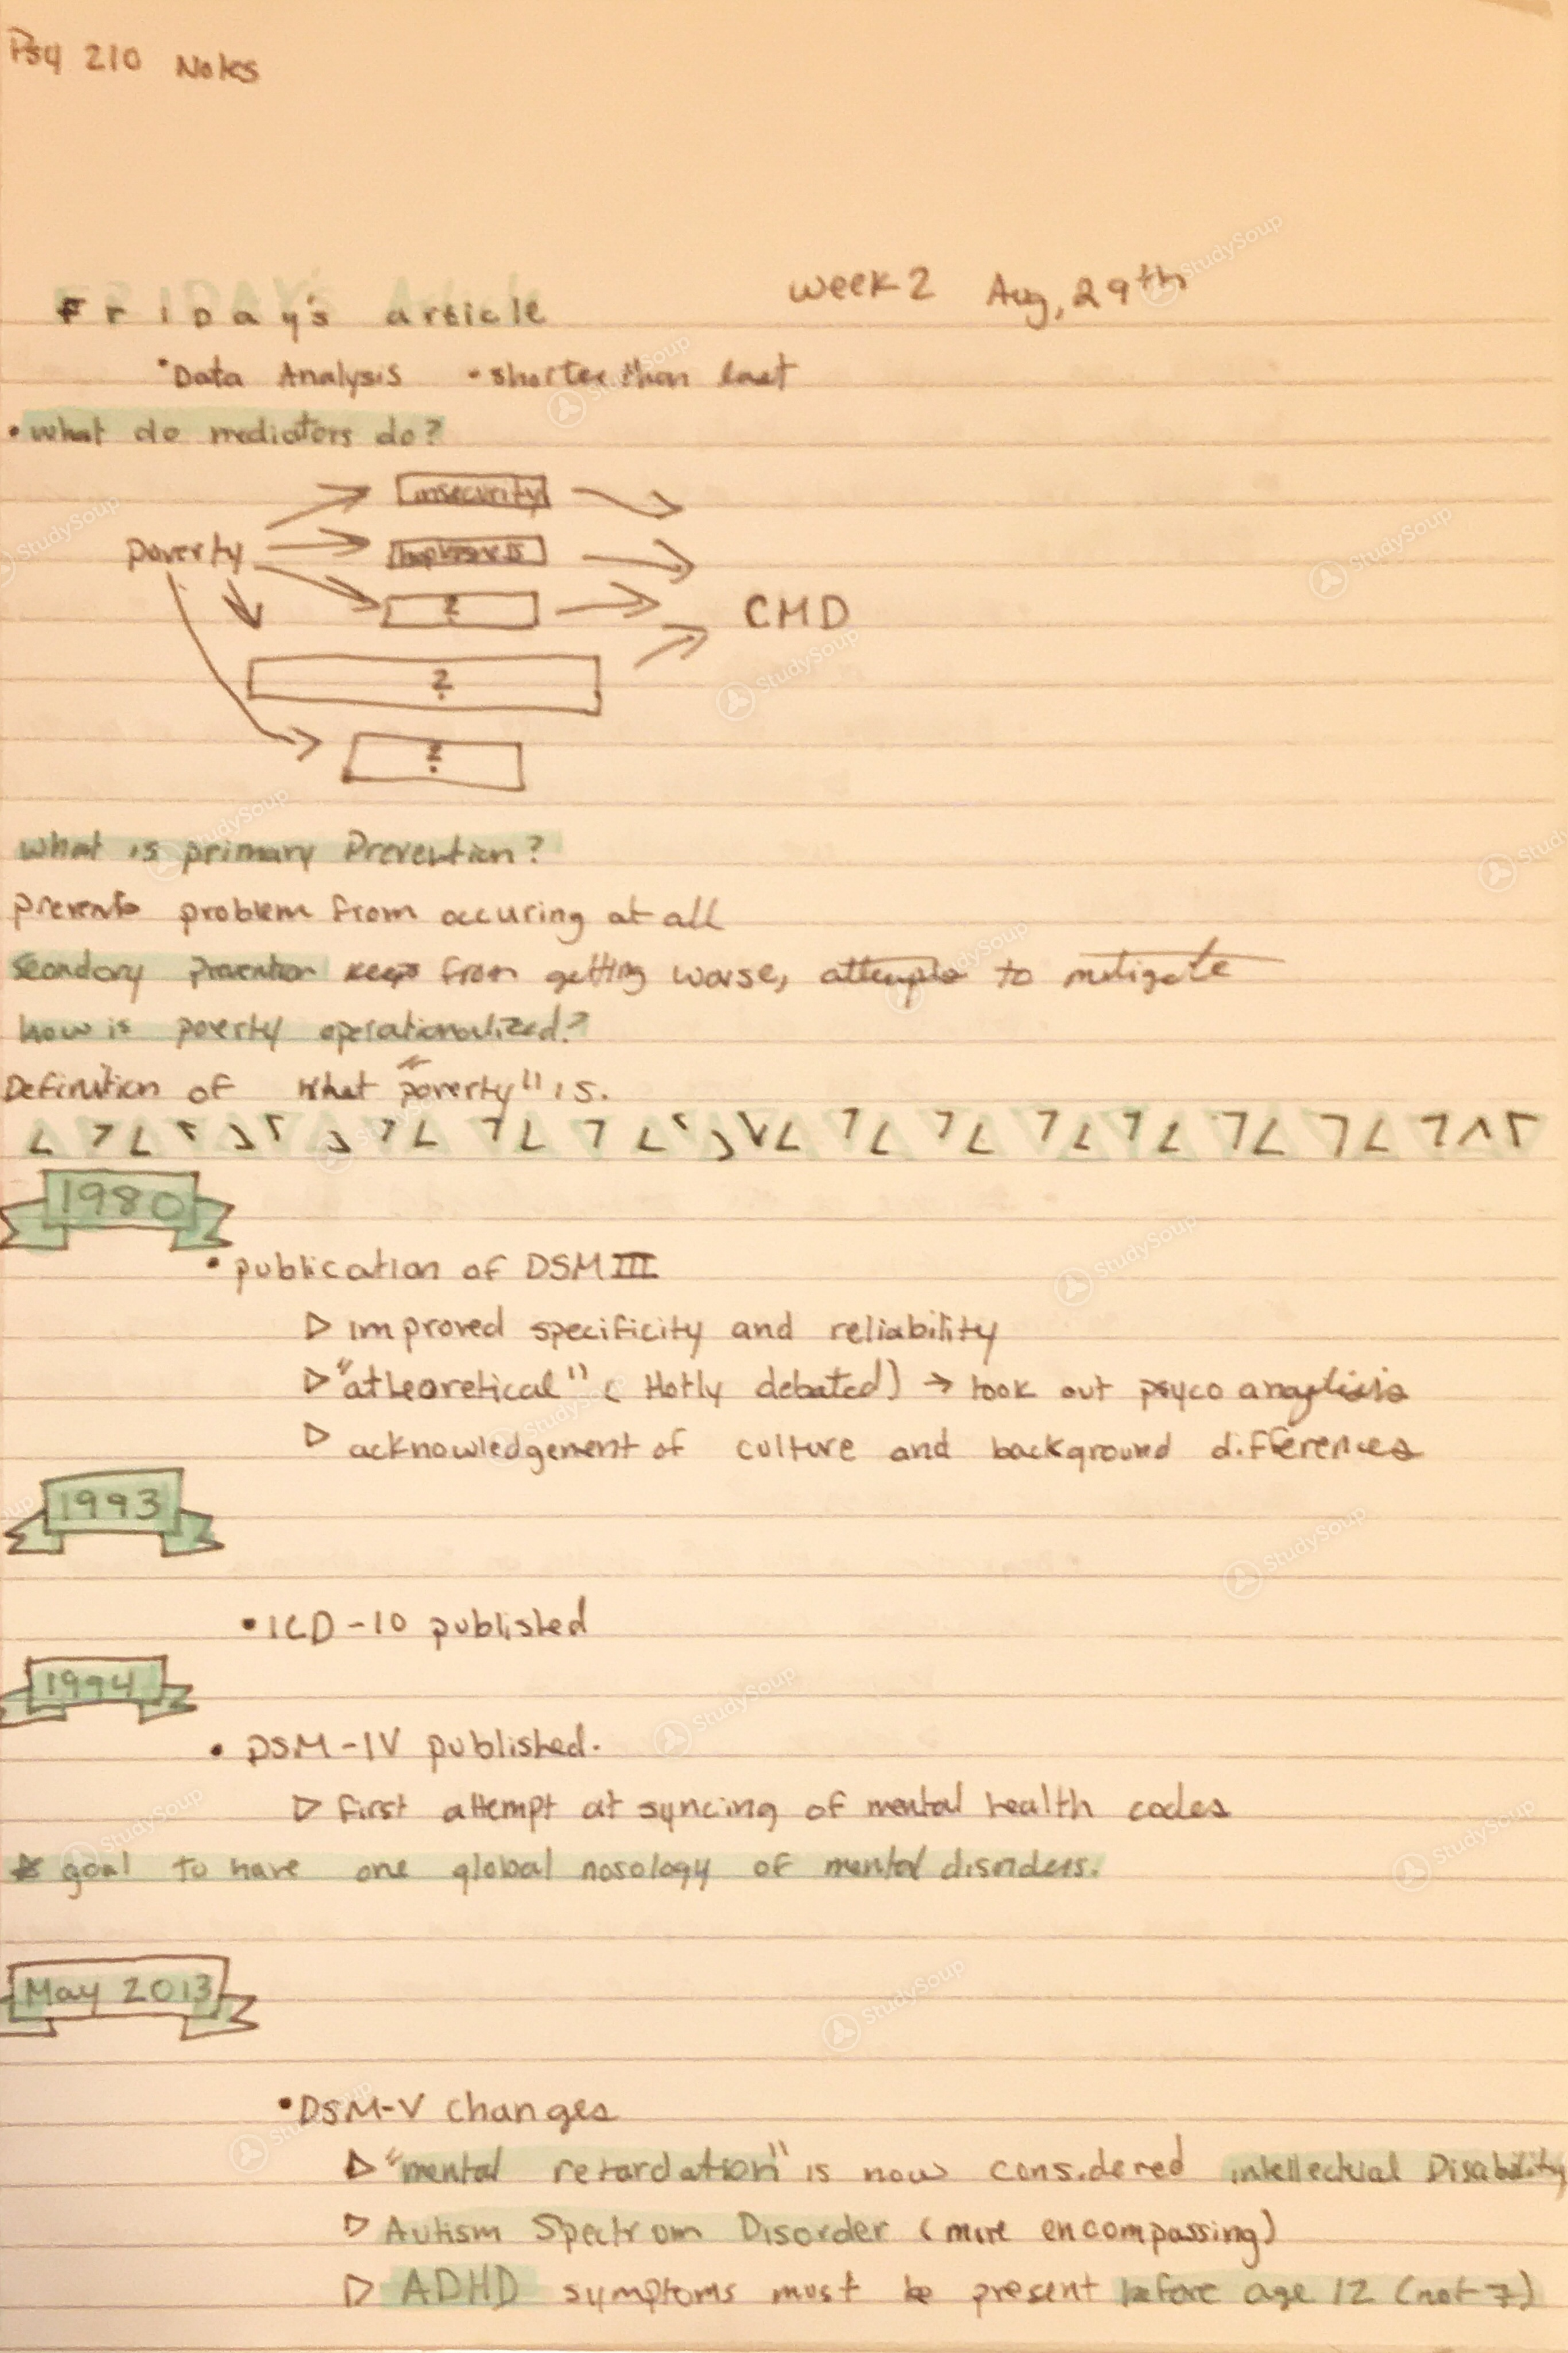 Psy 210 Notes
week 2 Aug, 29th
FRIDAY's article
•Data Analysis •shorter than last
•what do mediators do?
insecurity
poverty
hoplesness
?
CMD
?
?
what is primary Prevention?
prevents problem from occuring at all
Secondary prevention keeps from getting worse, attempts to mitigate
how is poverty operationalized?
Definition of what "poverty" is.
1980
• publication of DSM III
▷ improved specificity and reliability
▷ "atheoretical" ( Hotly debated) → took out psyco anaylisis
▷ acknowledgement of culture and background differences
1993
•ICD-10 published
1994
• DSM-IV published.
▷ first attempt at syncing of mental health codes
☆ goal to have one global nosology of mental disorders.
May 2013
•DSM-V Changes
▷ "mental retardation" is now considered intellectual Disability
▷ Autism Spectrum Disorder (more encompassing)
▷ ADHD symptoms must be present before age 12 (not 7)
StudySoup